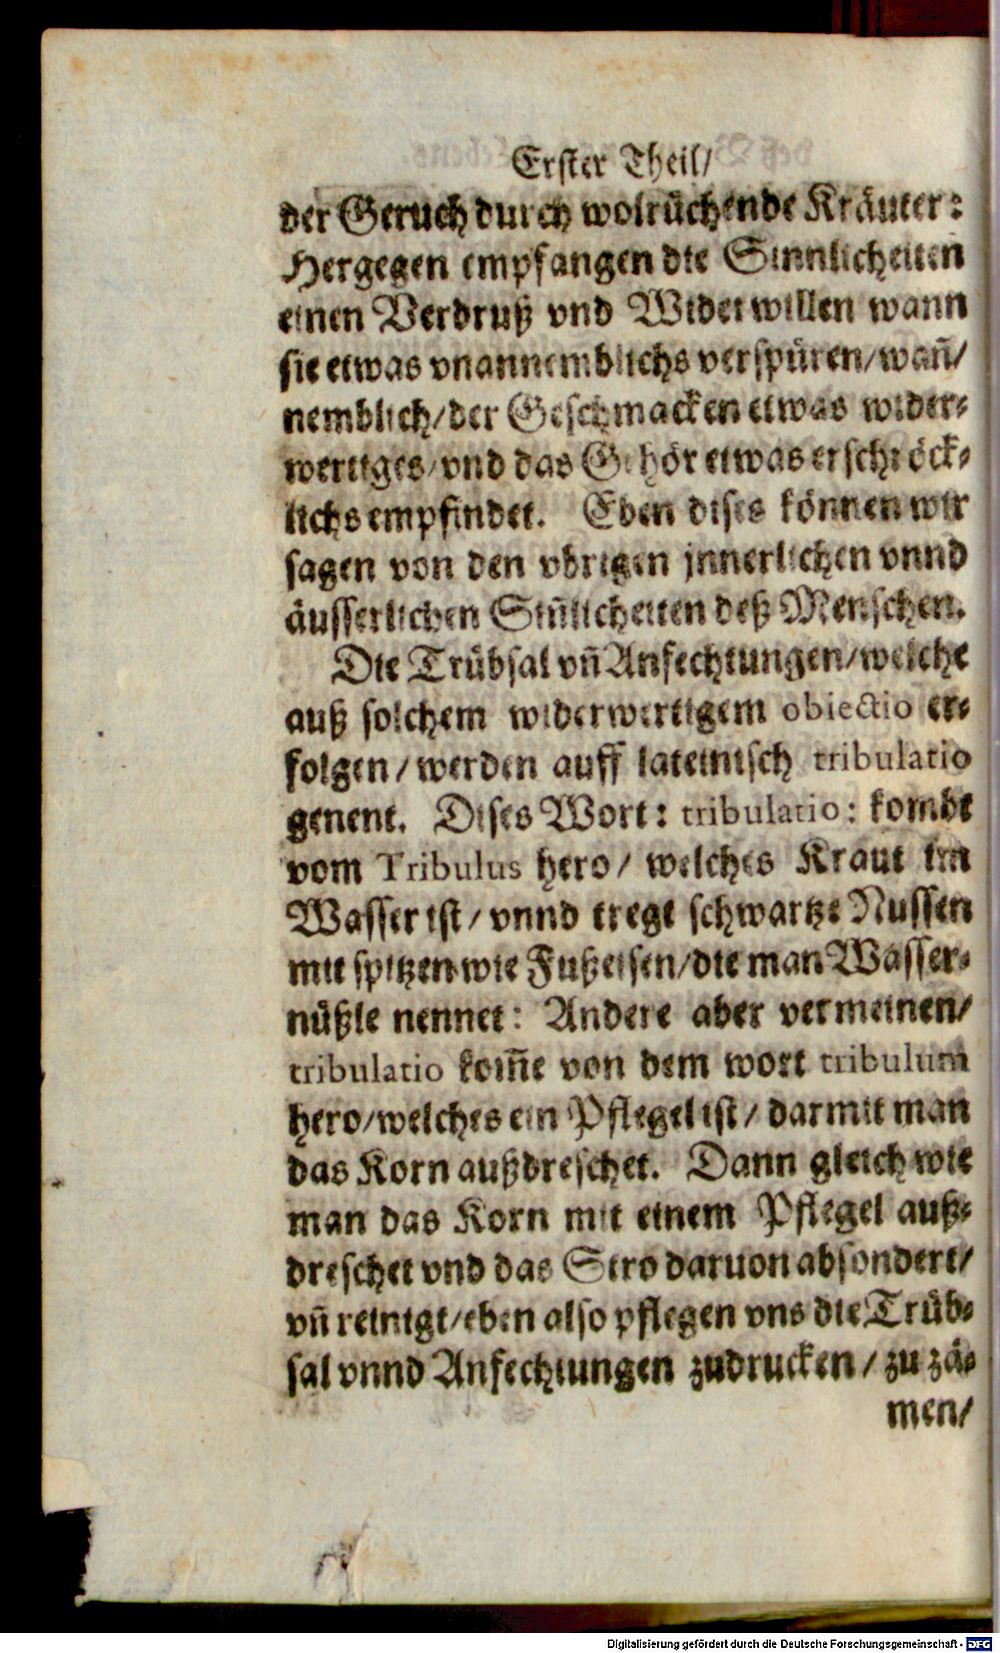 Erster Theil/
der Geruch durch wolrüchende Kräuter:
Hergegen empfangen die Sinnlicheiten
einen Verdruß vnd Widerwillen wann
sie etwas vnannemblichs verspüren/wañ/
nemblich/der Geschmacken etwas wider-
wertiges/vnd das Gehör etwas erschröck-
lichs empfindet. Eben dises können wir
sagen von den vbrigen jnnerlichen vnnd
äusserlichen Siñlicheiten deß Menschen.
Die Trübsal vñ Anfechtungen/welche
auß solchem widerwertigem obiectio er-
folgen/werden auff lateinisch tribulatio
genent. Dises Wort: tribulatio: kombt
vom Tribulus hero/ welches Kraut im
Wasser ist/ vnnd tregt schwartze Nussen
mit spitzen wie Fußeisen/die man Wasser-
nüßle nennet: Andere aber vermeinen/
tribulatio kom̃e von dem wort tribulum
hero/welches ein Pflegel ist/ darmit man
das Korn außdreschet. Dann gleich wie
man das Korn mit einem Pflegel auß-
dreschet vnd das Stro daruon absondert/
vñ reinigt/eben also pflegen vns die Trüb-
sal vnnd Anfechtungen zudrucken/ zu zä-
men/
Digitalisierung gefördert durch die Deutsche Forschungsgemeinschaft - DFG